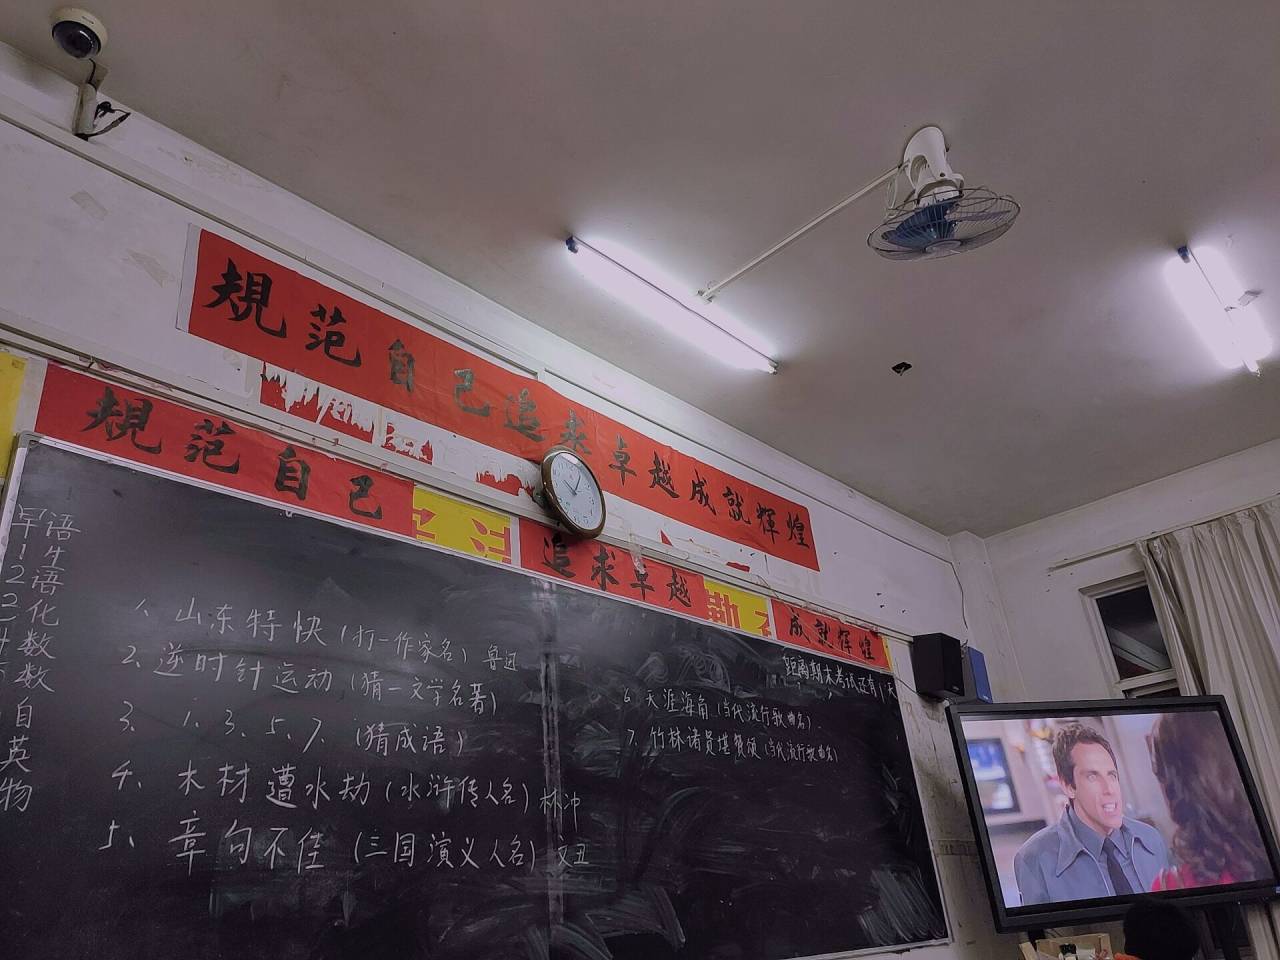 規范自己追求卓越成就辉煌
規范自己
追求卓越
成就辉煌
距离期末考试还有1天
早语
1生
2语
化
数
数
自
英
物
1、山东特快(打一作家名)鲁迅
2、逆时针运动(猜一文学名著)
3、1、3、5、7、(猜成语)
4、木材遭水劫(水浒传人名)林冲
5、章句不佳(三国演义人名)文丑
6、天涯海角(当代流行歌曲名)
7、竹林诸员
(当代流行歌曲名)